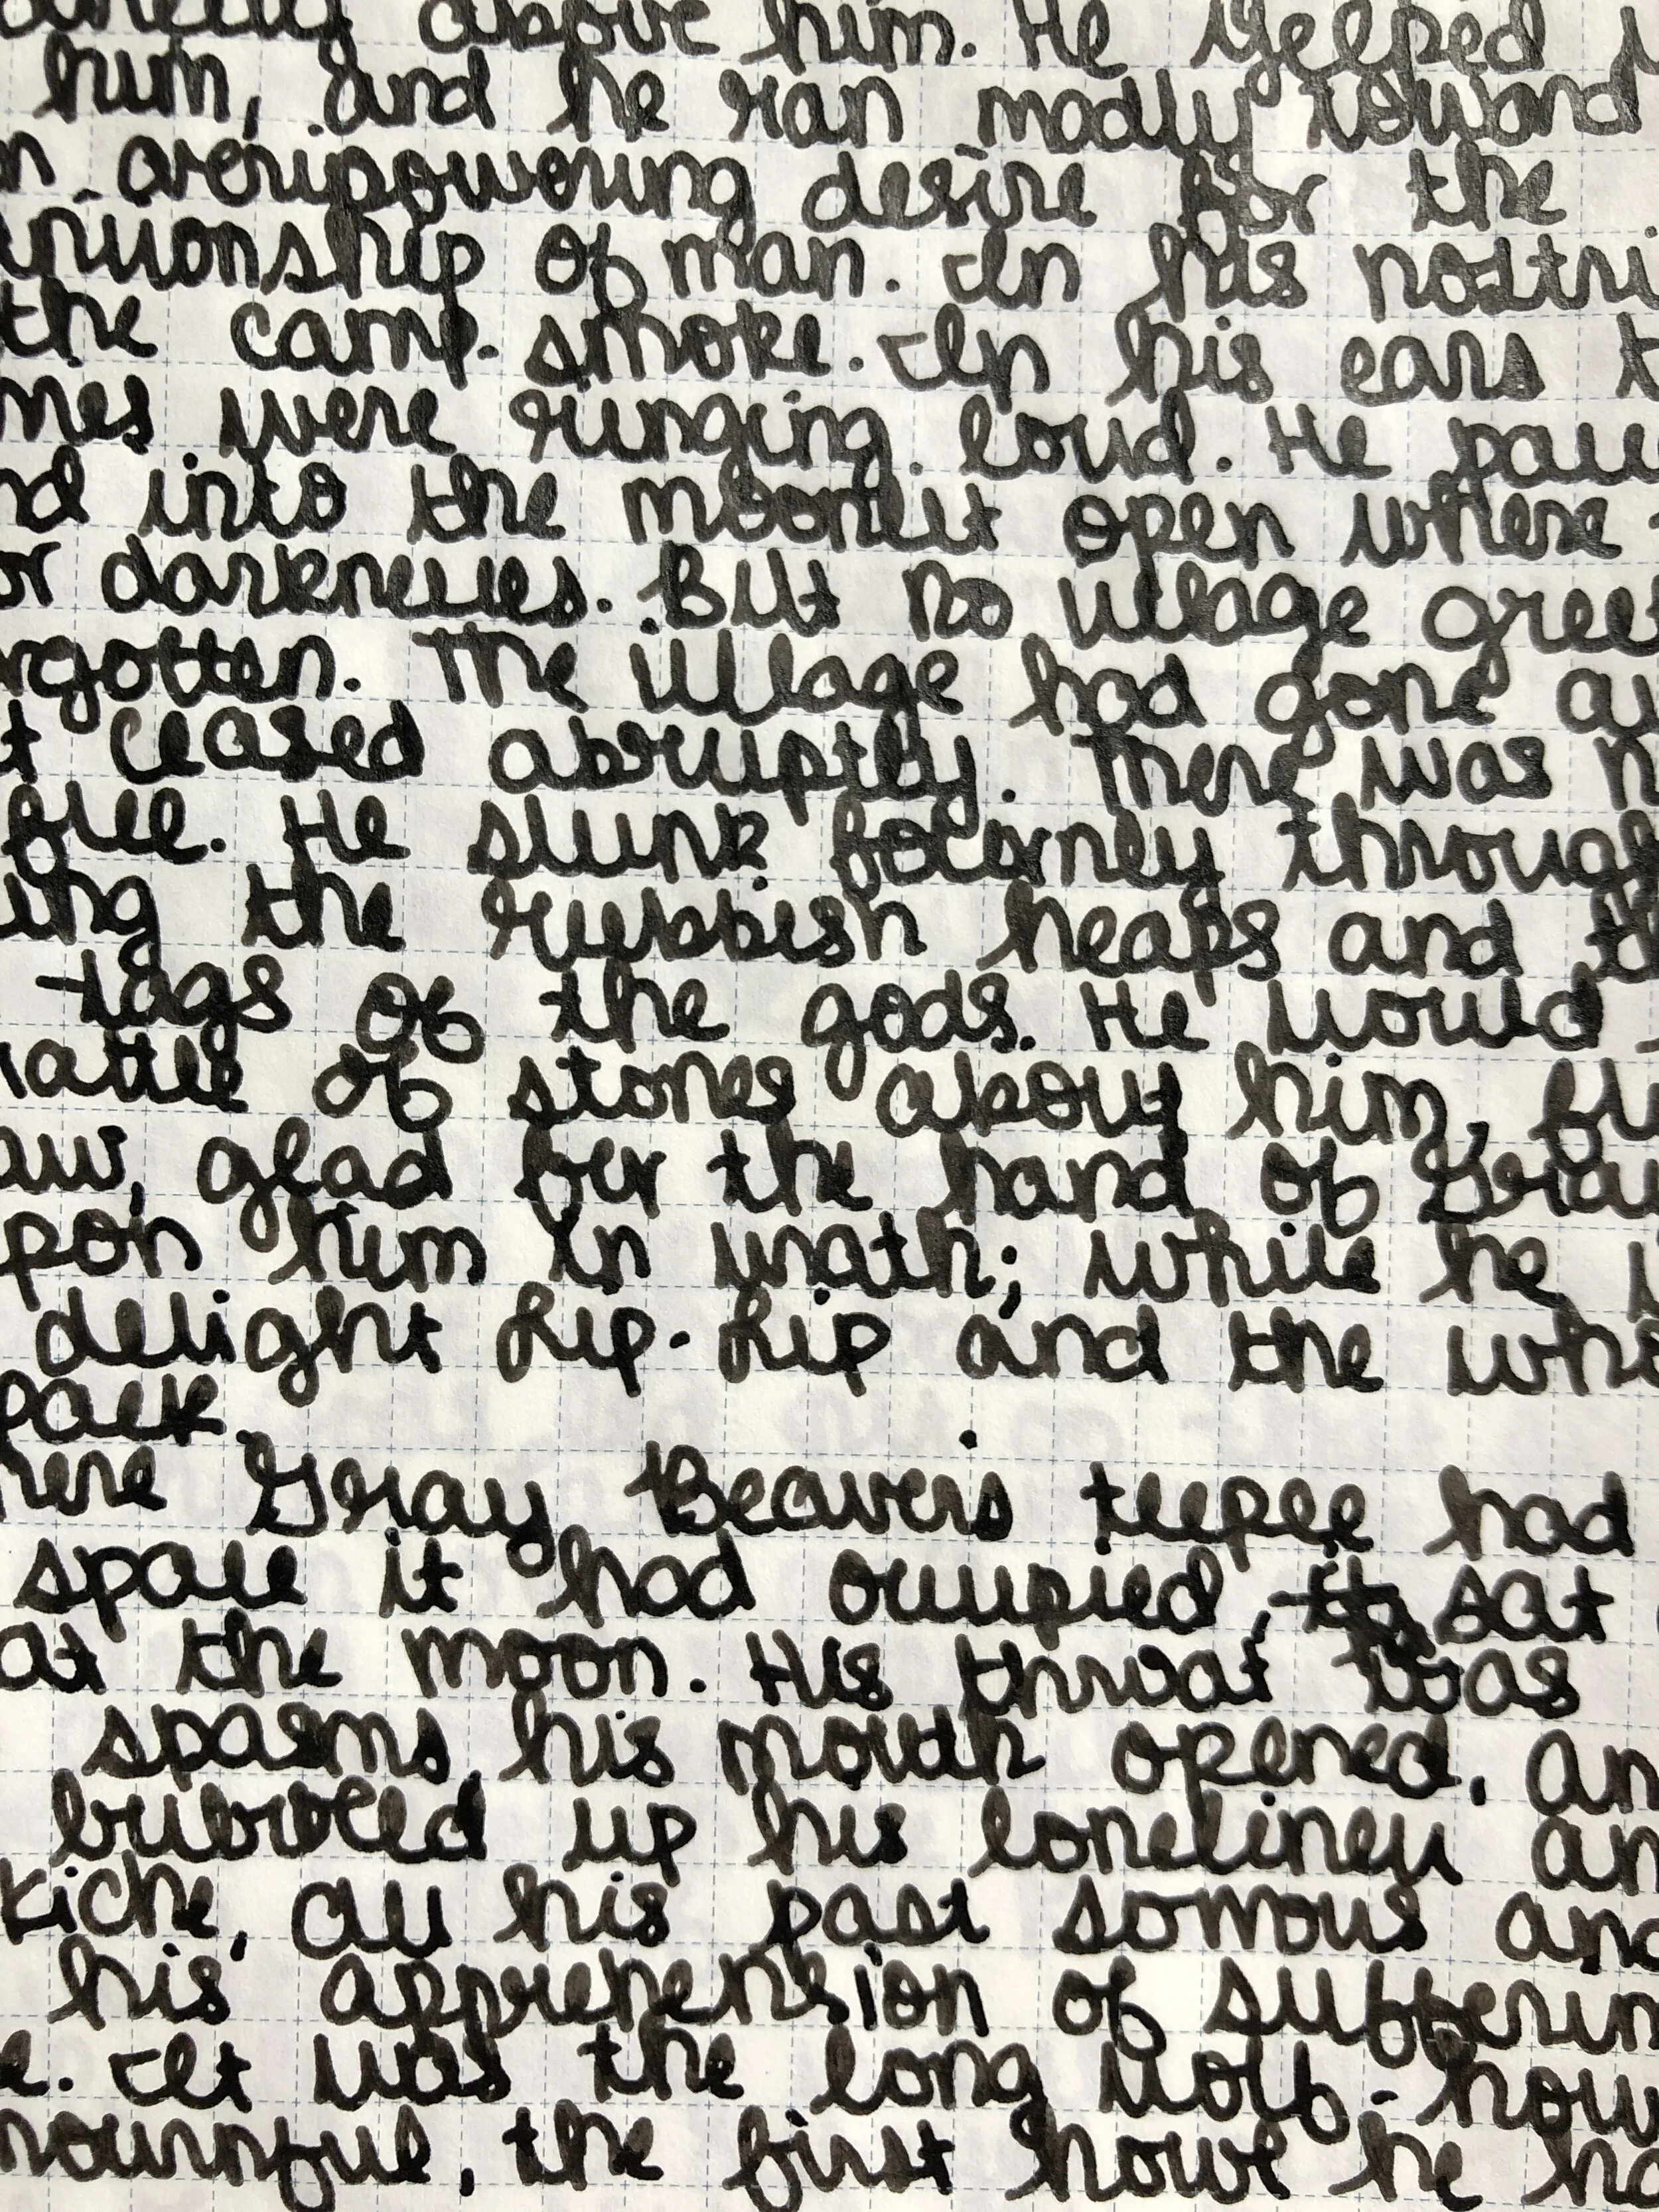 above him. He yelped
him, and he ran madly toward
overpowering desire for the
of man. In his nostri
the camp-smoke. In his ears t
mes were ringing loud. He
nd into the moonlit open where
or darknesses. But no village greet
rgotten. The village had gone
t ceased abruptly. There was n
flee. He slunk forlornly through
ing the rubbish heaps and th
tags of the gods. He would
rattle of stones about him, fl
aw, glad for the hand of Gray
pon him in wrath; while he
delight Lip-Lip and the who
pack.
here Gray Beavers teepee had
space it had occupied, sat
at the moon. His throat was
spasms, his mouth opened, an
bubbled up his loneliness an
Kiche, all his past sorrows and
his apprehension of sufferin
e. It was the long wolf-howl
mournful, the first howl he ha